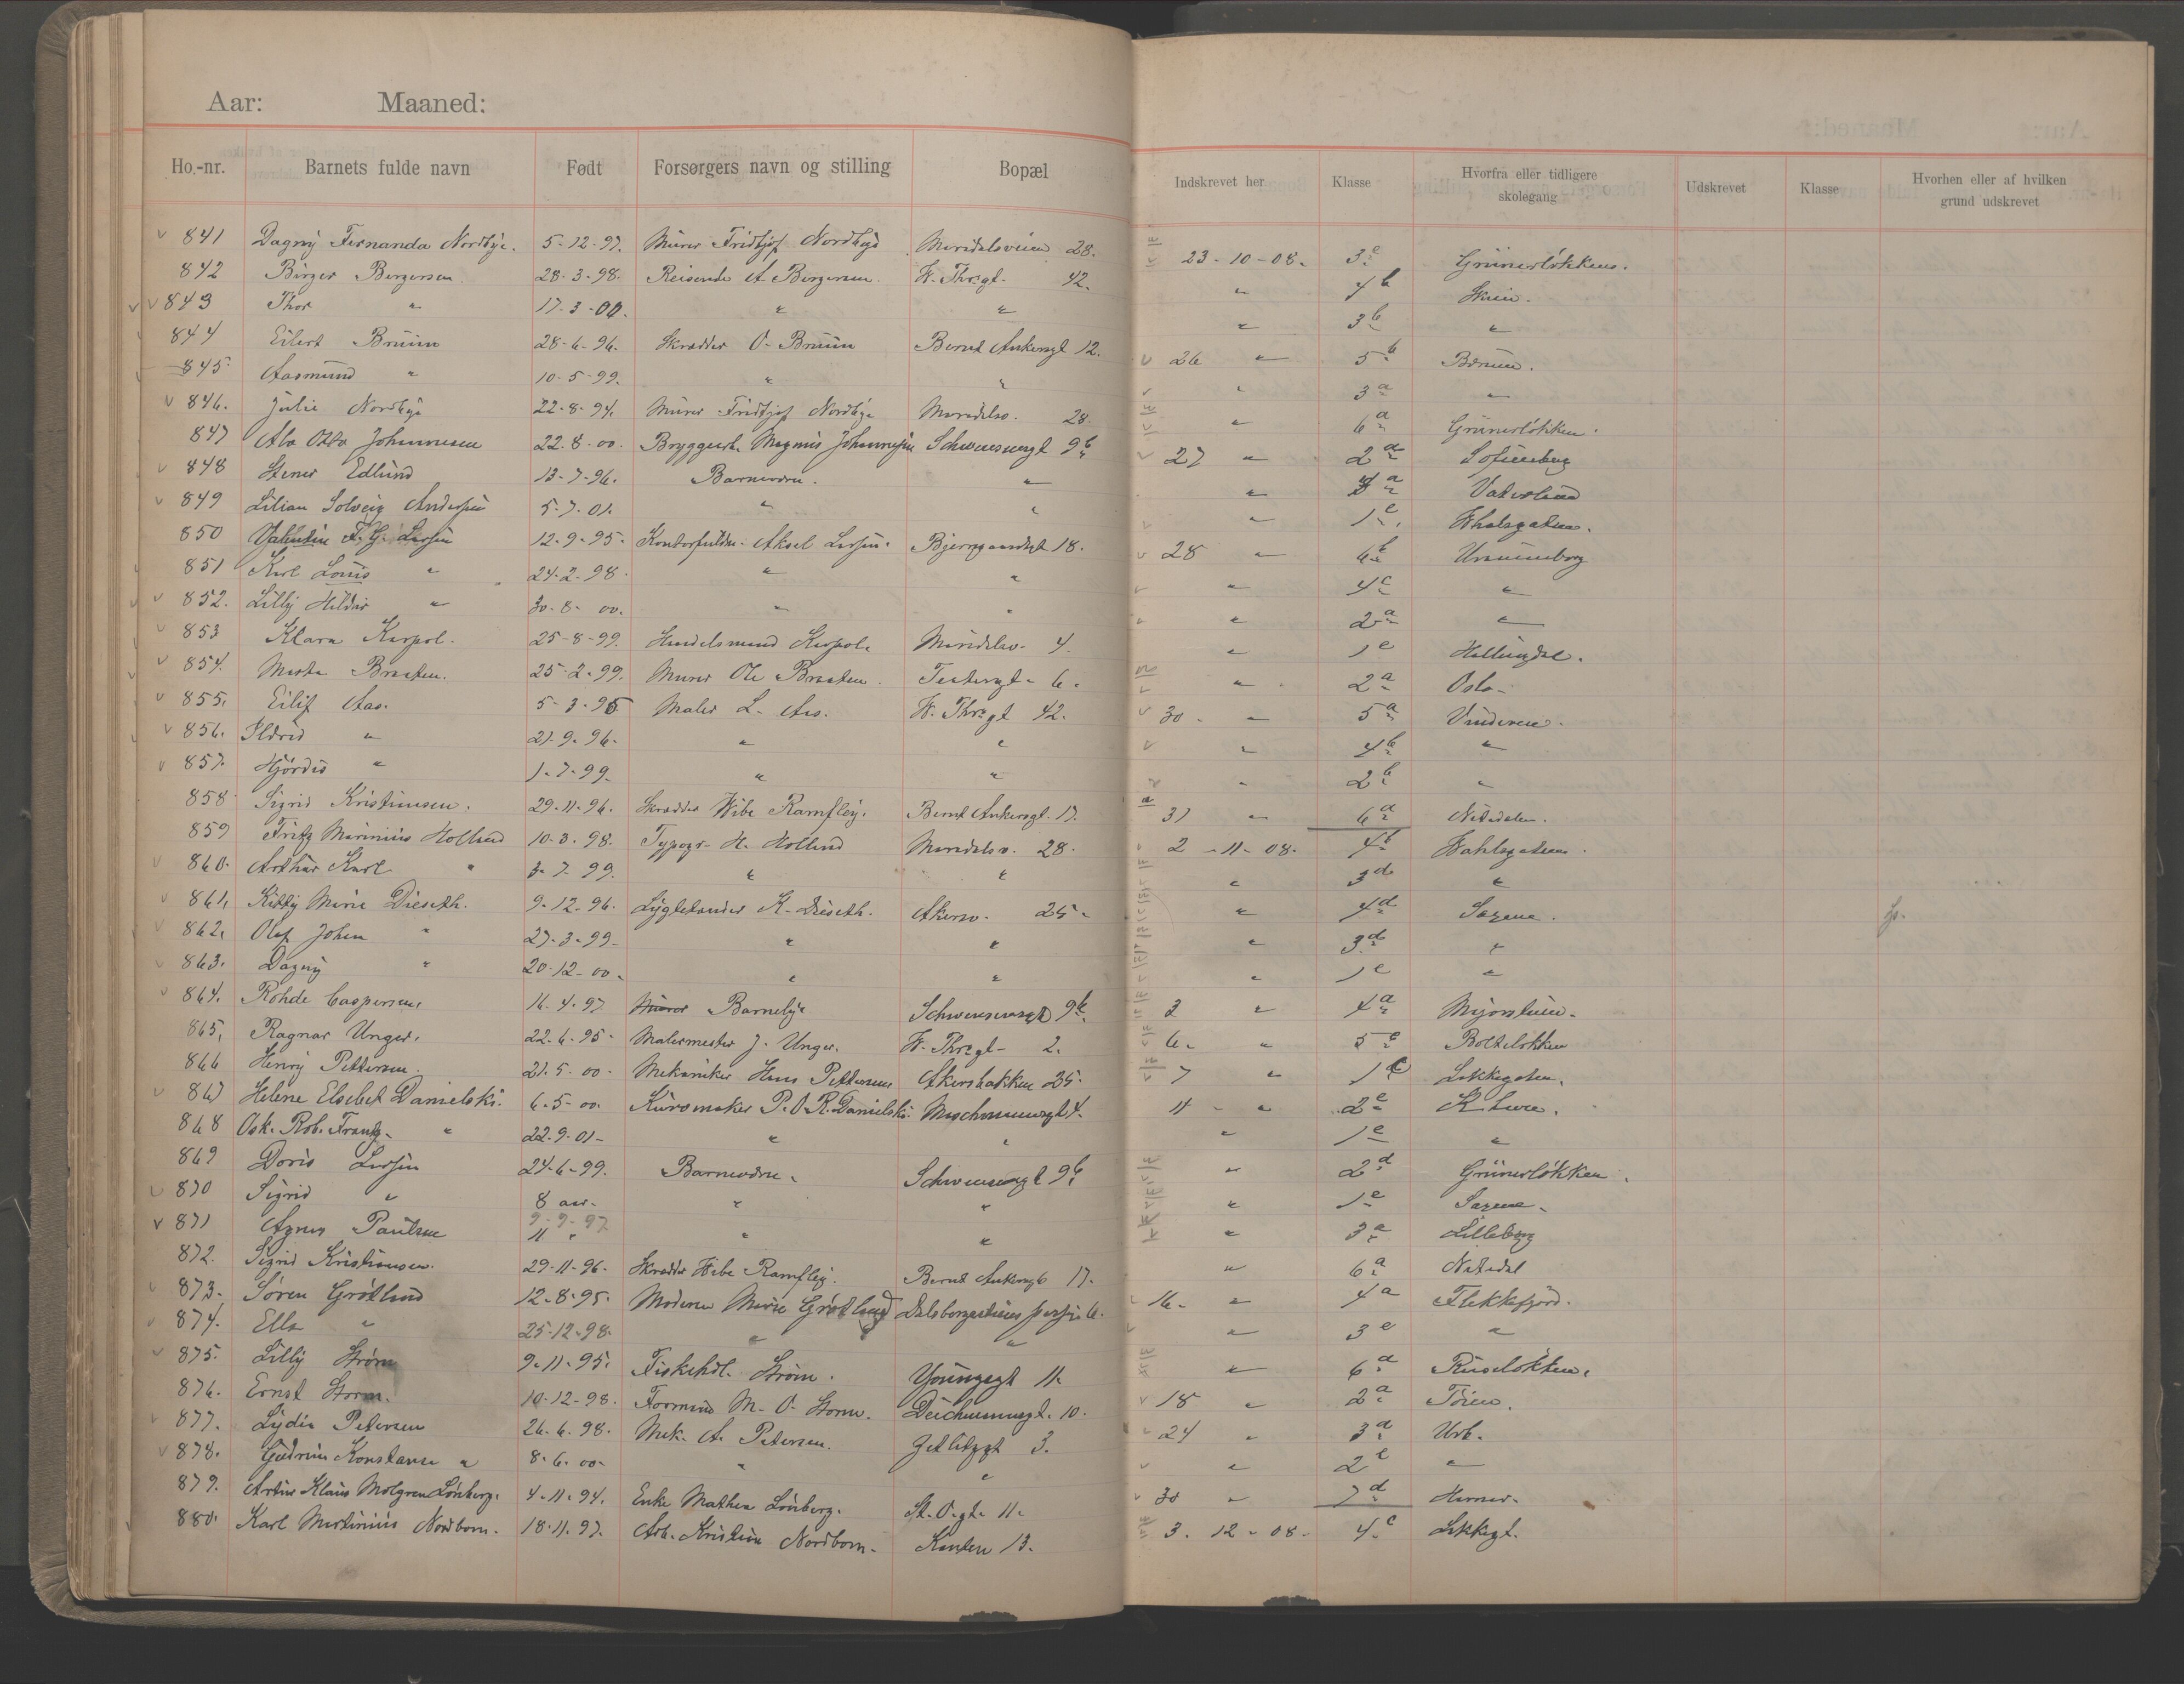 Aar: Maaned:
Ho.-nr. Barnets fulde navn Født Forsørgers navn og stilling Bopæl Indskrevet her Klasse Hvorfra eller tidligere skolegang Udskrevet Klasse Hvorhen eller af hvilken grund udskrevet
841 Dagny Fernanda Nordbye. 5-12-97. Murer Fridtjof Nordbye Maridalsveien 28. 23-10-08. 3e Grünerløkkens.
842 Birger Bergersen 28-3-98. Reisende A. Bergersen. W. Thr.gt. 42. " 4b Skien.
843 Thor " 17-3-00. " " " 3b "
844 Eilert Bruun 28-6-96. Skrædder O. Bruun Bernt Ankersgt 12. 26 " 5b Bærum.
845. Aasmund " 10-5-99. " " " 3a "
846. Julie Nordbye 22-8-94. Murer Fridtjof Nordbye Maridalsv. 28. " 6a Grünerløkken.
847 Alv Otto Johannesen 22-8-00. Bryggearb. Magnus Johannesen Schwensensgt 9b 27 " 2d Sofienberg
848 Stener Edlund 13-7-96. Barneværn. " " a Vaterland
849 Lilian Solveig Andersen 5-7-01. " " " 1e.
850 Valentin F. G. Larsen 12-9-95. Kontorfuldm. Aksel Larsen. Bjerregaardsgt 18. 28 " 6b Uranienborg
851 Karl Louis " 24-2-98. " " " 4c "
852. Lilly Hildur " 30-8-00. " " " 2a "
853 Klara Karpol. 25-8-99. Handelsmand Karpol. Maridalsv. 4. " 1e Hallingdal.
854. Marta Braaten. 25-2-99. Murer Ole Braaten. Testensgt. 6. " 2a Oslo.
855. Eilif Aas. 5-3-95 Maler L. Aas. W. Thr.gt 42. 30. " 5a Vinderen.
856. Ildrid " 21-9-96. " " " 4b "
857. Hjørdis " 1-7-99. " " " 2b "
858 Sigrid Kristiansen. 29-11-96. Skrædder Wibe Ramfley. Bernt Ankersgt. 17. 31 " 6a Nitedalen.
859 Fritz Marinius Holland 10-3-98. Typogr. H. Holland Maridalsv. 28. 2-11-08. 4b Wahlsgatens.
860. Arthur Karl " 3-7-99. " " " 3d "
861. Kitty Marie Dieseth. 9-12-96. Lygtetænder K. Dieseth. Akersv. 25. " 4d Sagene.
862. Olaf Johan " 27-3-99. " " " 3d "
863. Dagny " 20-12-00. " " " 1e "
864. Rohde Caspersen. 16-4-97 Murer Barnebye Schwensensgt 9b. 3 " 4a Majorstuen.
865. Ragnar Unger. 22-6-95. Malermester J. Unger. W. Thr.gt 2. 6. " 5e Bolteløkken
866 Henry Pettersen. 21-5-00. Mekaniker Hans Pettersen Akersbakken 25. 7 " 1c Løkkegaten.
867 Helene Elsebet Danielski. 6-5-00. Kurvmaker P. O. R. Danielski. Maschmannsgt 4. 11 " 2e
868 Osk. Rob. Frantz. " 22-9-01. " " " 1e "
869 Doris Larsen 24-6-99. Barneværn. Schwensensgt 9b. " 2d Grünerløkken.
870 Sigrid " 8 aar. " " " 1e Sagene.
871 Agnes Paulsen 9-9-97 11 " " " " 3a Lilleborg
872. Sigrid Kristiansen. 29-11-96. Skrædder Wibe Ramfley. Bernt Ankersgt 17. " 6a Nitedal
873. Søren Grøtland 12-8-95. Moderen Marie Grøtland Dalsbergstiens 6. 16. " 4a Flekkefjord.
874. Ella " 25-12-98. " " " 3e "
875. Lilly Strøm 9-11-95. Fiskehdl. Strøm. Youngsgt 11. " 6a Ruseløkken.
876. Ernst Storm. 10-12-98. Formand M. O. Storm. Deichmannsgt. 10. 18 " 2a Tøien.
877. Lydia Petersen 26-6-98. Mek. A. Petersen. Zetlitzgt 3. 24 " 3d Urb.
878. Gudrun Konstanse " 8-6-00. " " " 2e "
879. Artur Klaus Molgren Lönberg. 4-11-94. Enke Mathea Lönberg. St. O. gt. 11. 30 " 7d Hamar.
880. Karl Martinius Nordbom. 18-11-97. Arb. Kristian Nordbom. Kanten 13. 3. 12-08. 4c Løkkegt.